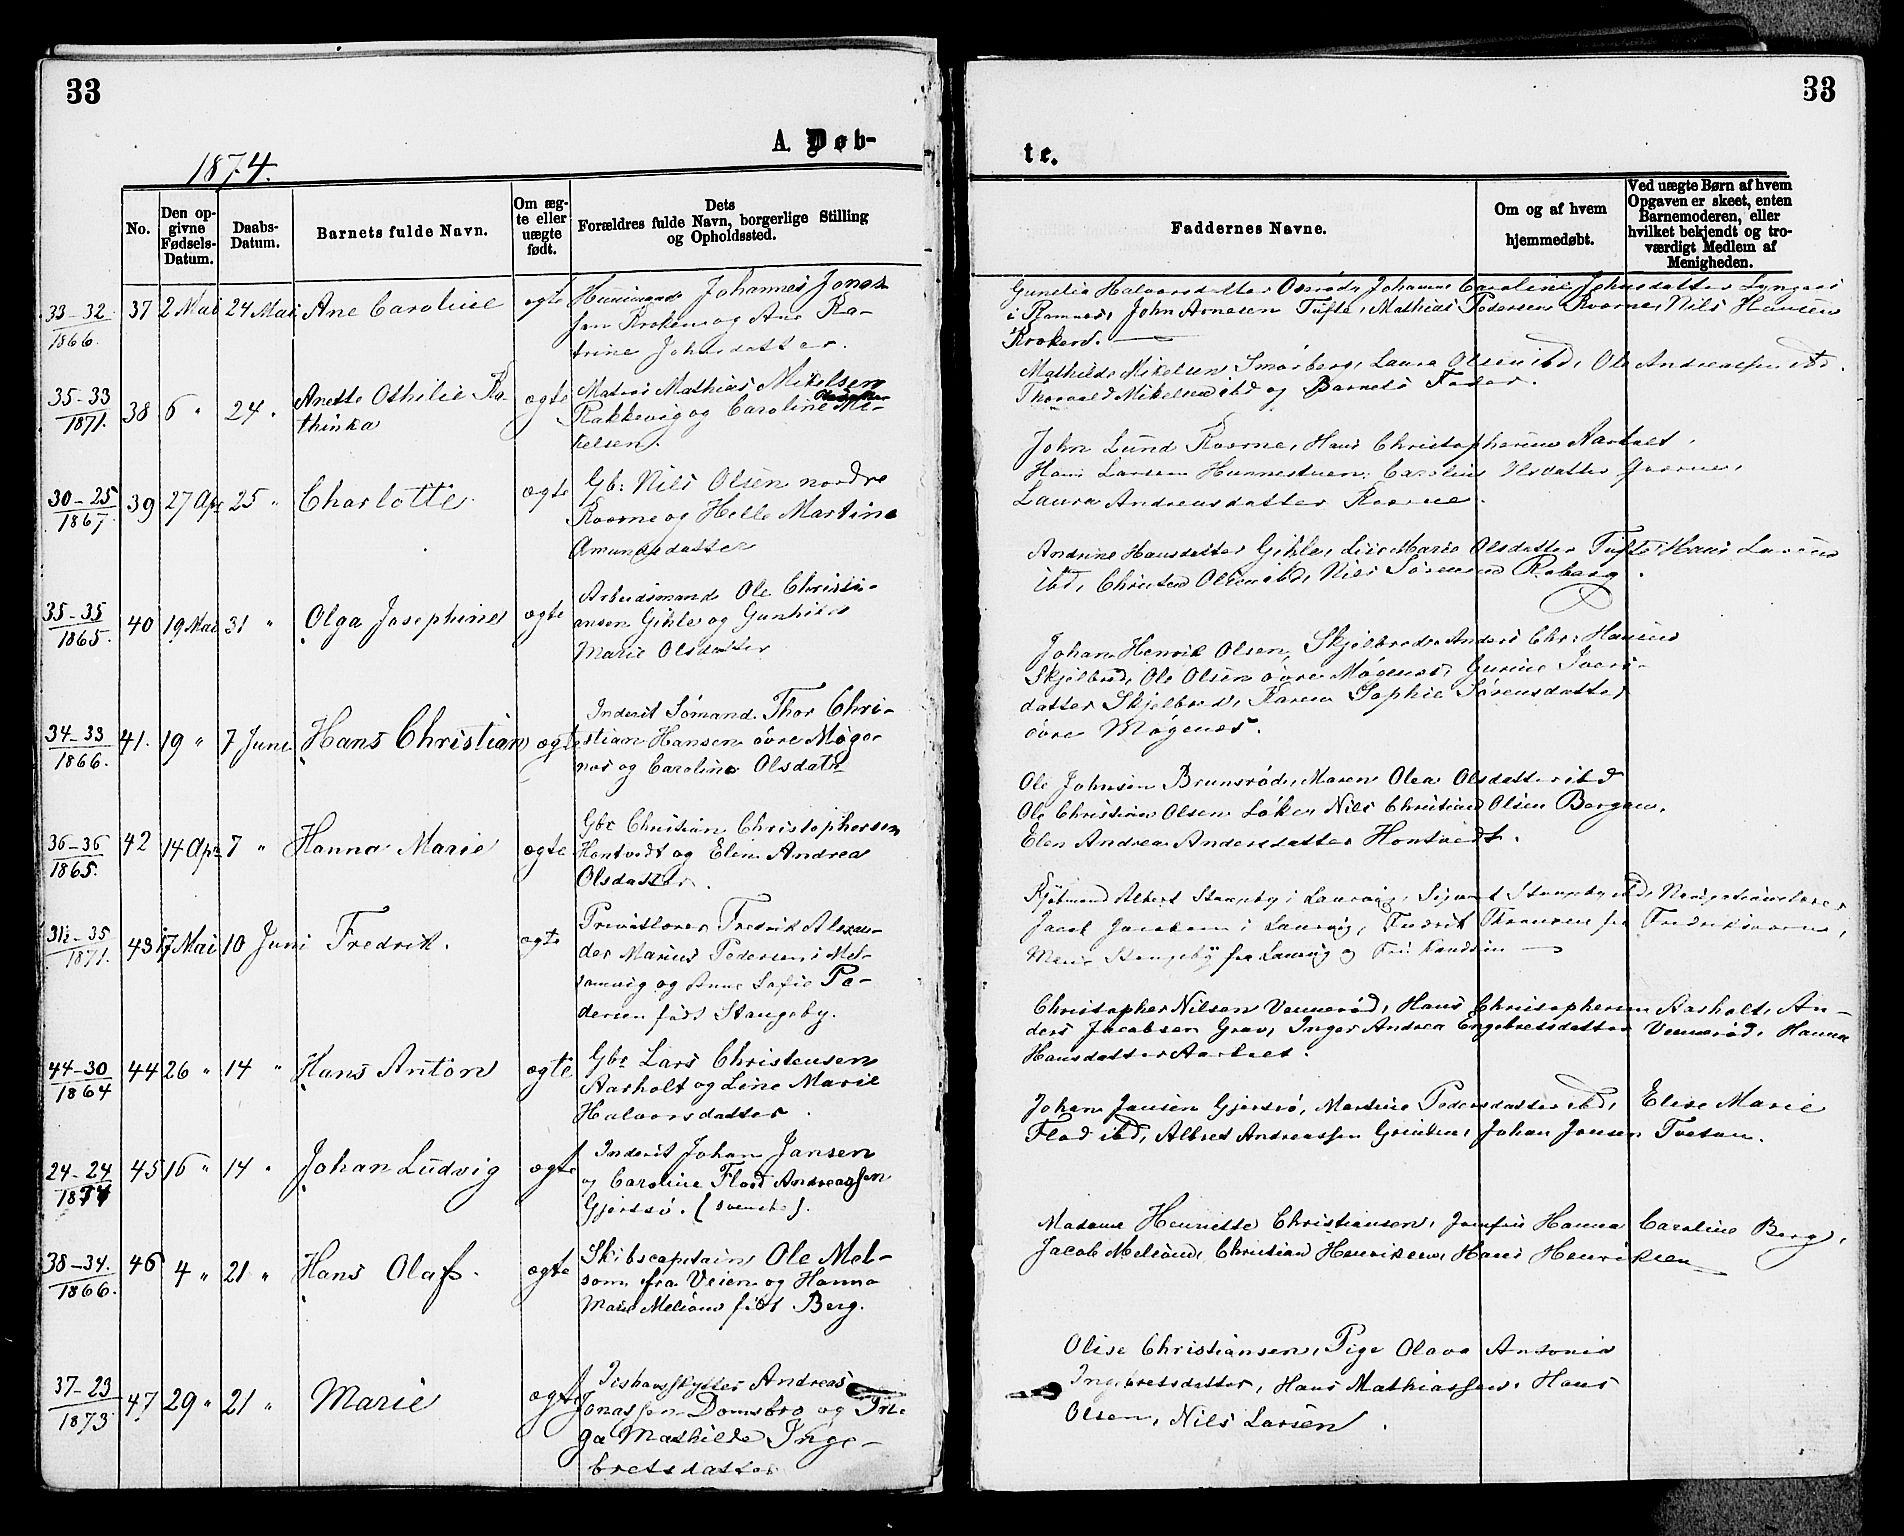 33
A. Døb-
1874.
No.
Den op-
givne
Fødsels-
Datum.
Daabs-
Datum.
Barnets fulde Navn.
Om æg-
te eller
uægte
født.
Dets
Forældres fulde Navn, borgerlige Stilling
og Opholdssted.
33-32
1866.
37 2 Mai 24 Mai Ane Caroline ægte Huusmand Johannes Jonas-
sen Kroken og Ane Ka-
trine Johnsdatter.
35-33
1871.
38 6 " 24 " Anette Othilie Ka-
thinka
ægte Matros Mathias Mikelsen
Rakkevig og Caroline Mi-
kelsen.
30-25
1867.
39 27 Apr 25 " Charlotte ægte Gb: Nils Olsen nordre
Roerne og Helle Martine
Amundsdatter
35-35
1865.
40 19 Mai 31 " Olga Josephine ægte Arbeidsmand Ole Christi-
ansen Gihle og Gunhild
Marie Olsdatter
34-33
1866.
41. 19 " 7 Juni Hans Christian ægte Inderst Sømand Thor Chri-
stian Hansen øvre Møge-
nes og Caroline Olsdatr
36-36
1865.
42 14 Apr 7 " Hanna Marie ægte Gbr Christian Christophersen
Hontvedt og Elen Andrea
Olsdatter.
31½-35
1871.
43 17 Mai 10 Juni Fredrik. ægte Privatlærer Fredrik Alexan-
der Marius Pedersen i Mel-
somvig og Anne Sofie Pe-
dersen født Stangeby.
44-30
1864
44 26 " 14 " Hans Anton ægte Gbr Lars Christensen
Aasholt og Line Marie
Halvorsdatter.
24-24
1874
45 16 " 14 " Johan Ludvig ægte Inderst Johan Jansen
og Caroline Flod Andreassen
Gjersø. (svenske).
38-34.
1866.
46 4 " 21 " Hans Olaf. ægte Skibscaptain Ole Mel-
som fra Veien og Hanna
Marie Melsom født Berg.
37-23
1873.
47 29 " 21 " Marie ægte Andreas
Jonassen Domsbro og In-
ga Mathilde Inge-
bretsdatter
33
te.
Faddernes Navne.
Om og af hvem
hjemmedøbt.
Ved uægte Børn af hvem
Opgaven er skeet, enten
Barnemoderen, eller
hvilket bekjendt og tro-
værdigt Medlem af
Menigheden.
Halvorsdatter Johanne Caroline Johnsdatter
i Ramnes, John Arnesen Tufte, Mathias Pedersen Roerne, Nils Hansen
Mathilde Mikelsen Smørberg, Laura Olsen ibd, Ole Andreassen ibd.
Thorvald Mikelsen ibd og Barnets Fader.
John Lund Roerne, Hans Christophersen Aasholt,
Hans Larsen Hunnestuen, Caroline Olsdatter
Laura Andreasdatter Roerne.
Andrine Hansdatter Gihle, Lise Marie Olsdatter Tufte, Hans Larsen
ibd, Christen Olsen ibd, Nils Sørensen Roberg.
Johan Henrik Olsen, Skjelbred, Anders Chr: Hansen
Skjelbred, Ole Olsen øvre Møgenes, Gurine Ivers-
datter Skjelbred, Karen Sophie Sørensdatter
øvre Møgenes.
Ole Johnsen Brunsrød, Maren Olea Olsdatter ibd
Ole Christian Olsen Løke, Nils Christian Olsen Bergan,
Elen Andrea Andersdatter Hontvedt.
Kjøbmand Albert Stangeby i Laurvig, Sigvart Stangeby ibd, Navigationslærer
Jacob Jacobsen i Laurvig, Fredrik Thranesen fra Fredriksværn,
Marie Stangeby fra Laurvig og
Christopher Nilsen Vennerød, Hans Christophersen Aasholt, An-
ders Jacobsen Grav, Inger Andrea Engebretsdatter Vennerød, Hanna
Hansdatter Aasholt.
Johan Jansen Gjersø, Martine Pedersdatter ibd, Elise Marie
Flod ibd, Albret Andreassen Grinden, Johan Jonsen Tveten.
Madame Henriette Christiansen, Jomfru Hanna Caroline Berg,
Jacob Melsom, Christian Henriksen, Hans Henriksen
Olise Christiansen, Pige Olava Antonia
Ingebretsdatter, Hans Mathiassen, Hans
Olsen, Nils Larsen.